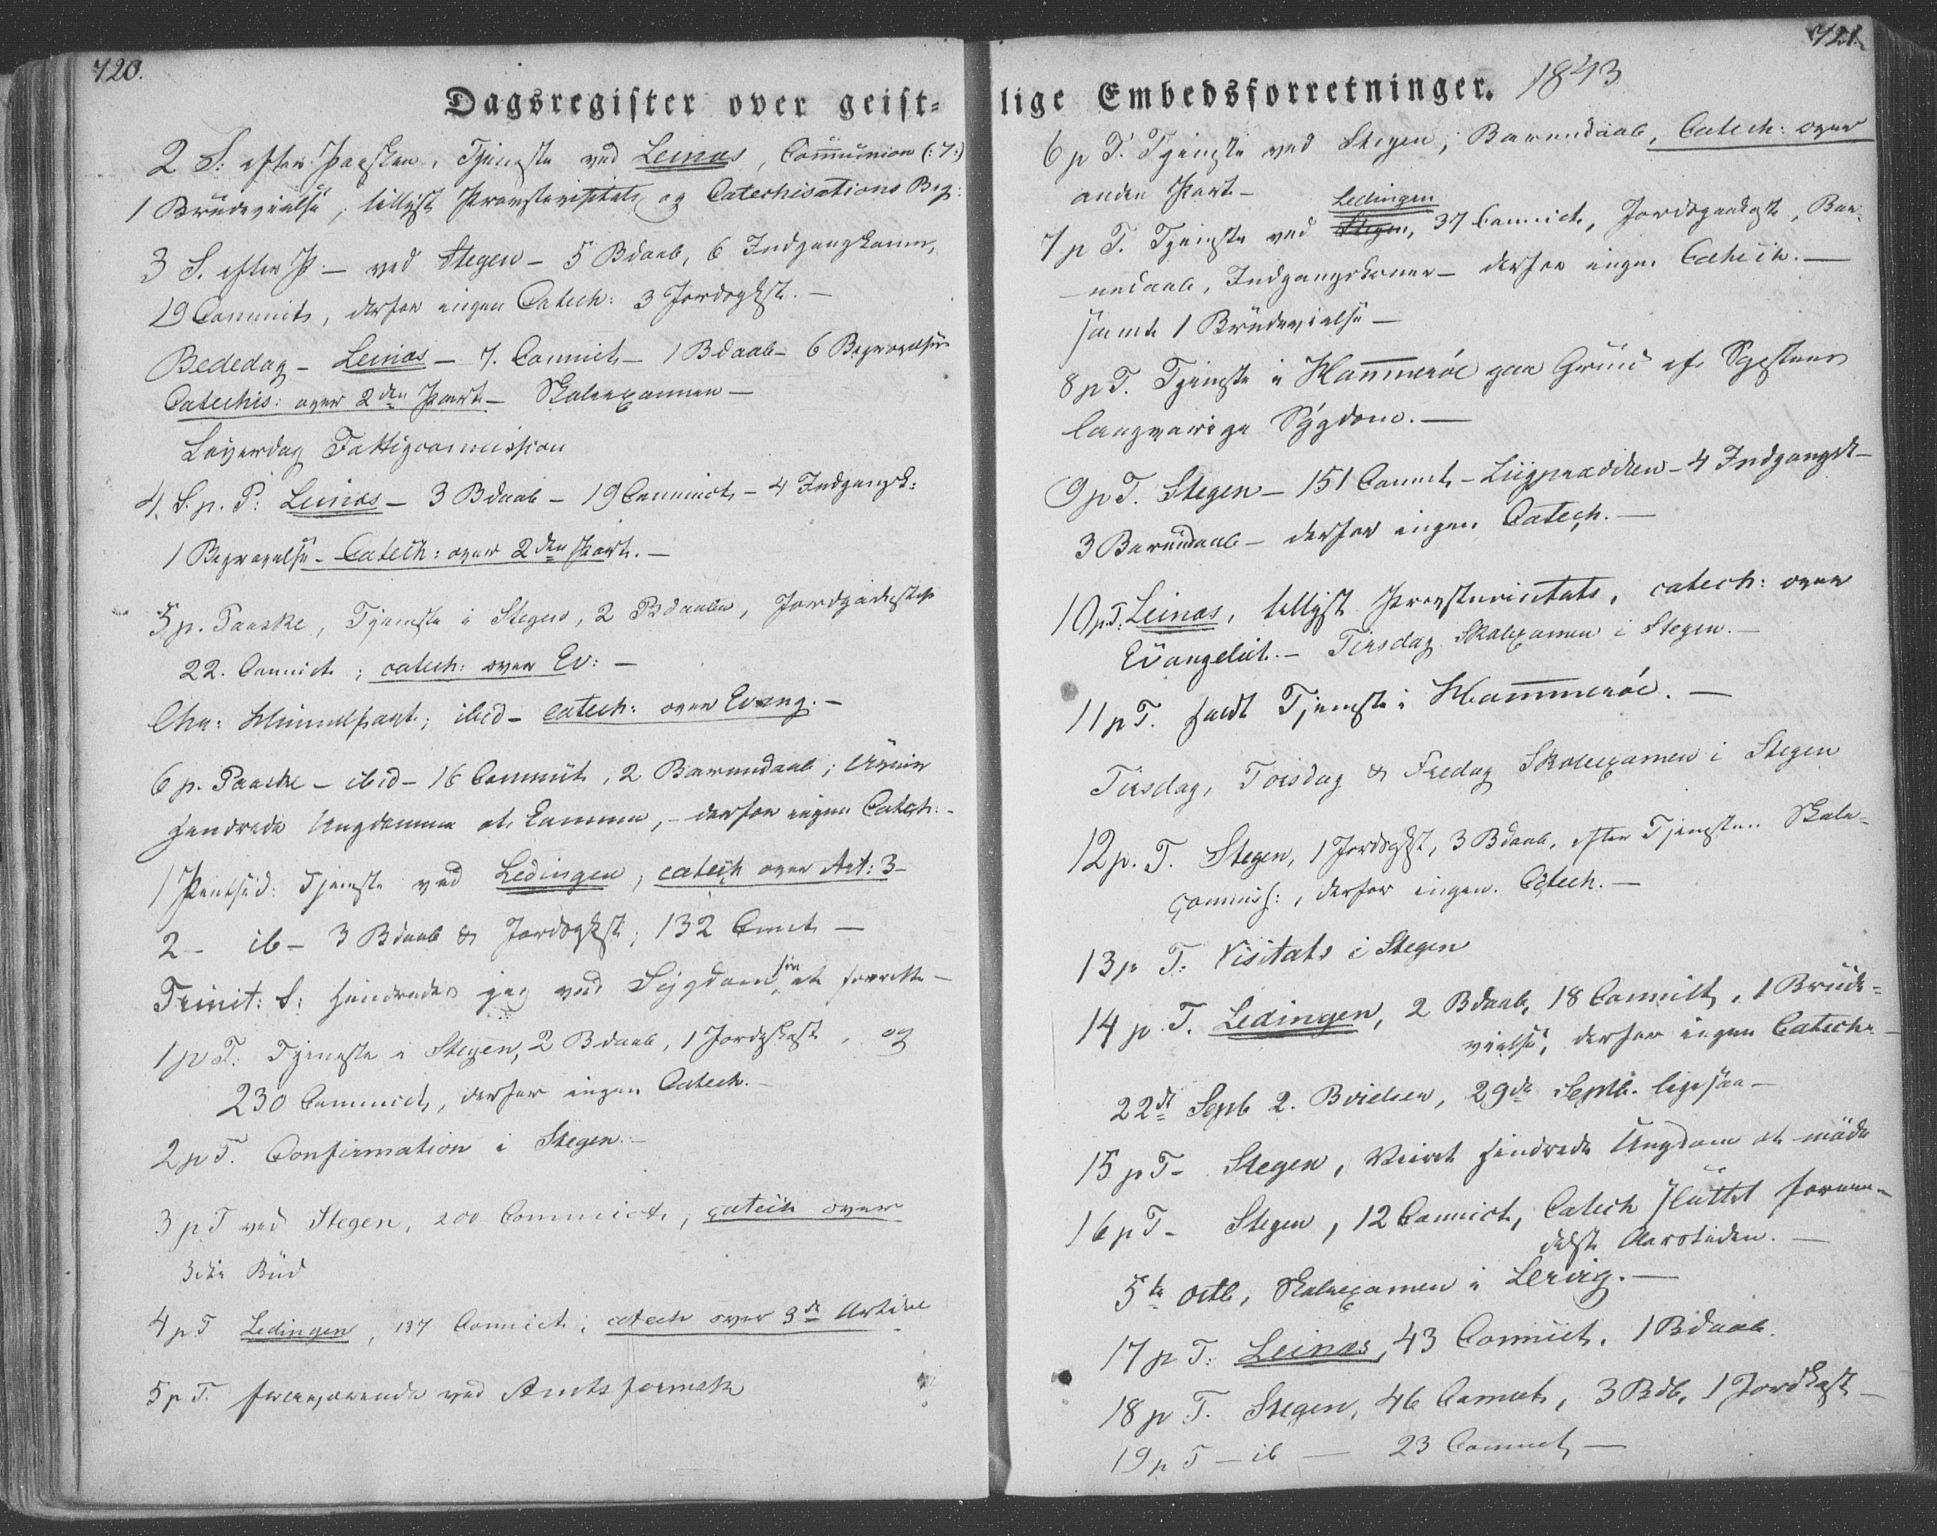 720.
Dagsregister over geist-
2 S. efter Paasken, Tjeneste ved Leinæs, Communion (:7:)
1 Brudevielse, tillyst Provstevisitats og Catechisations Beg:
3 S. efter P. — ved Stegen — 5 Bdaab, 6 Indgangskoner,
19 Communic, derfor ingen Catech: 3 Jordsgkst. —
Bededag — Leinæs — 7. Comnict — 1 Bdaab — 6 Begravelser
Catechis: over 2den Part — Skoleexamen —
Løverdag Fattigcommission
4. S. p. P: Leinæs — 3 Bdaab — 19 Communict — 4 Indgangsk:
1 Begravelse — Catech: over 2den Part. —
5 p. Paaske, Tjeneste i Stegen, 2 Bdaabe, Jordpaakastelse
22. Comnict; catech: over Ev: —
Chr: Himmelfart; ibid — catech: over Evang. —
6 p. Paaske — ibid — 16 Communict, 2 Barnedaab; Uveir
hindrede Ungdommen at komme, — derfor ingen Catech. —
1 Pentsed: Tjeneste ved Lødingen, catech over Art: 3 —
2 — ib — 3 Bdaab & Jordsgkst; 132 Comct —
Trinit: S: hindredes jeg ved Sygdom fra at forrette —
1 p T. Tjeneste i Stegen, 2 Bdaab, 1 Jordpkast, og
230 Communict, derfor ingen Catech. —
2 p T. Confirmation i Stegen. —
3 p T ved Stegen, 200 Communict, catech over
3die Bud
4 p T Lødingen, 137 Comnict; catech over 3de Artikel
5 p T. fraværende ved
721.
lige Embedsforretninger. 1843
6 p T. Tjeneste ved Stegen, Barnedaab, Catech: over
anden Part —
Lødingen
7 p T. Tjeneste ved Stegen, 37 Comnict, Jordspaakaste, Bar-
nedaab, Indgangskoner — derfor ingen Catech. —
samt 1 Brudevielse —
8 p T. Tjeneste i Hammerøe paa Grund af Sognepræstens
langvarige Sygdom. —
9 p T. Stegen — 151 Comnct — Liigprædiken — 4 Indgangsk —
3 Barnedaab — derfor ingen Catech. —
10 p T: Leinæs, tillyst Provstevisitats, catech: over
Evangeliet. — Tirsdag Skolexamen i Stegen. —
11 p T. holdt Tjeneste i Hammerøe. —
Tirsdag, Torsdag & Fredag Skoleexamen i Stegen
12 p. T. Stegen, 1 Jordsgkst, 3 Bdaab, efter Tjenesten Skole-
commiss:, derfor ingen Catech. —
13 p T: Visitats i Stegen
14 p. T. Lødingen, 2 Bdaab, 18 Comnict, 1 Brude-
vielse, derfor ingen Catech. —
22de Septb 2. Bvielser, 29de Septb. ligesaa —
15 p T — Stegen, Veiret hindrede Ungdom at møde
16 p T — Stegen, 12 Comnict, Catech sluttet forme-
delst Aarstiden. —
5te Octb, Skoleexamen i Lervig. —
17 p T: Leinæs, 43 Comnict, 1 Bdaab.
18 p T. Stegen, 46 Comnct, 3 Bdb, 1 Jordkast —
19 p T — ib — 23 Comnct —